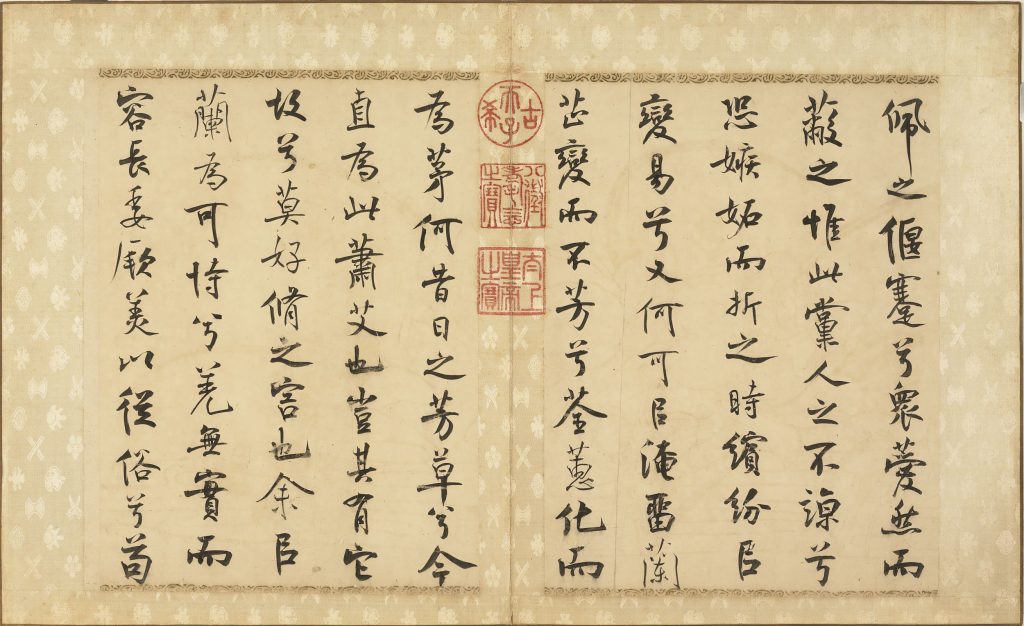 佩之偃蹇兮衆薆然而
蔽之惟此黨人之不諒兮
恐嫉妬而折之時繽紛㠯
變易兮又何可㠯淹畱蘭
芷變而不芳兮荃蕙化而
古希天子
八徵耄念之寶
太上皇帝之寶
為茅何昔日之芳草兮今
直為此蕭艾也豈其有它
故兮莫好脩之害也余㠯
蘭為可恃兮羌無實而
容長委厥美以從俗兮苟